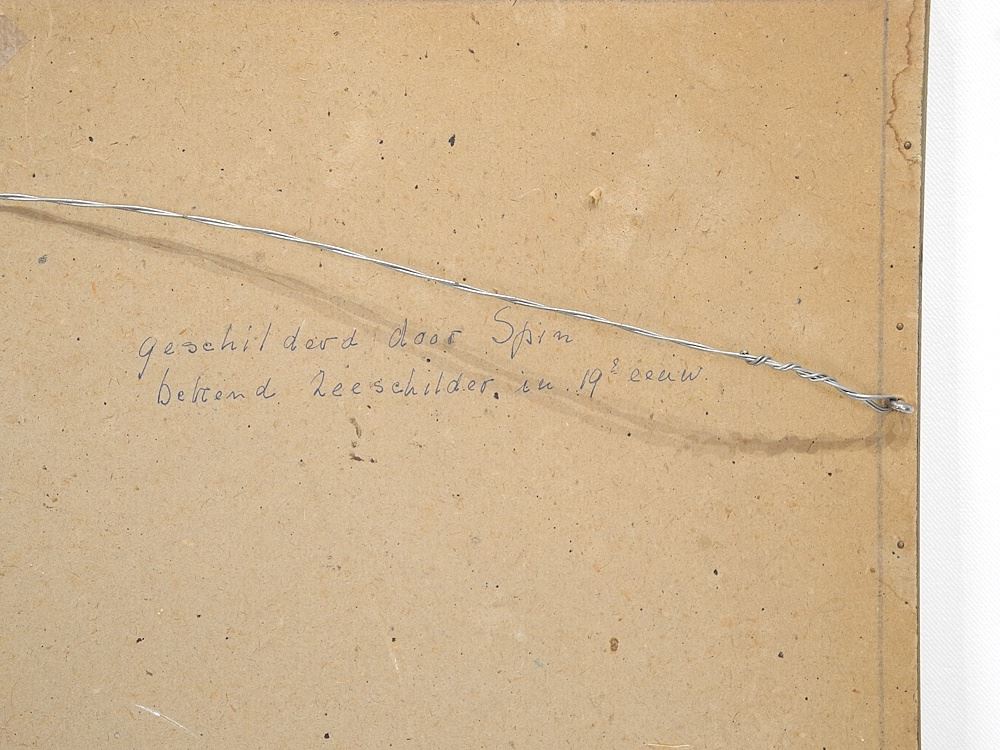 geschilderd door Spin
bekend Zeeschilder in 19e eeuw.